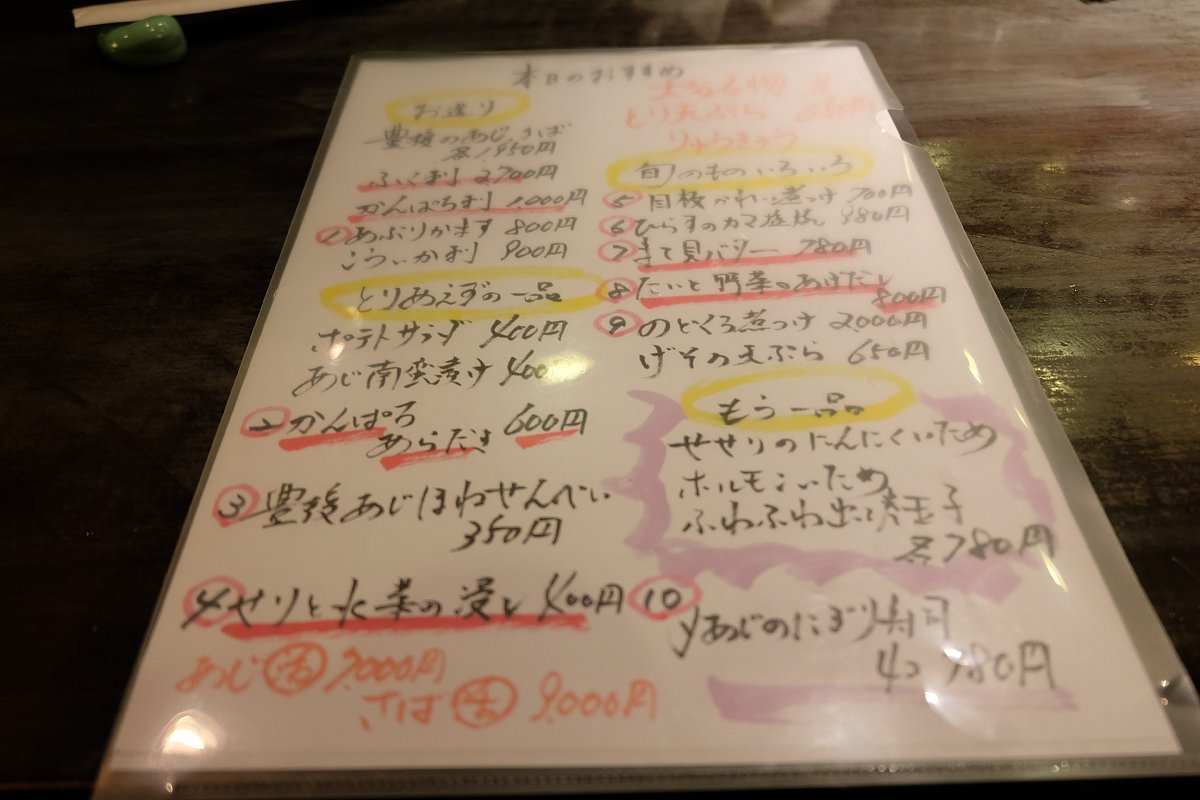 本日のおすすめ
お造り
豊後のあじ、さば
各1,950円
ふく刺 2,700円
かんぱち刺 1,000円
1 あぶりかます 800円
こういか刺 900円
とりあえずの一品
ポテトサラダ 400円
あじ南蛮漬け 400
2 かんぱち
あらだき 600円
3 豊後あじほねせんべい
350円
4 せりと水菜の浸し 400円
あじ 活 7,000円
さば 活 9,000円
名物
とり天ぷら 650円
りゅうきゅう
旬のものいろいろ
5 目板かれい煮つけ 700円
6 ひらすのカマ塩焼 980円
7 まて貝バター 780円
8 たいと野菜のあげだし
800円
9 のどぐろ煮つけ 2,000円
げその天ぷら 650円
もう一品
せせりのにんにくいため
ホルモンいため
ふわふわ出し巻玉子
各780円
10 あじのにぎり寿司
4つ 980円